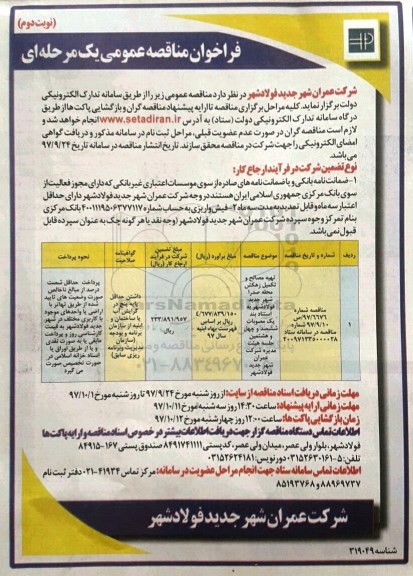 (نوبت دوم)
فراخوان مناقصه عمومی یک مرحله‌ای
شرکت عمران شهر جدید فولادشهر در نظر دارد مناقصه عمومی زیر را از طریق سامانه تدارک الکترونیکی
دولت برگزار نماید. کلیه مراحل برگزاری مناقصه تا ارایه پیشنهاد مناقصه گران و بازگشایی پاکت‌ها از طریق
درگاه سامانه تدارک الکترونیکی دولت (ستاد) به آدرس www.setadiran.ir انجام خواهد شد و
لازم است مناقصه گران در صورت عدم عضویت قبلی، مراحل ثبت نام در سامانه مذکور و دریافت گواهی
امضای الکترونیکی را جهت شرکت در مناقصه محقق سازند. تاریخ انتشار مناقصه در سامانه تاریخ ۹۷/۹/۲۴
می‌باشد.
نوع تضمین شرکت در فرآیند ارجاع کار:
۱- ضمانت‌نامه بانکی و یا ضمانت نامه های صادره از سوی موسسات اعتباری غیر بانکی که دارای مجوز فعالیت از
سوی بانک مرکزی جمهوری اسلامی ایران هستند در وجه شرکت عمران شهر جدید فولادشهر دارای حداقل
اعتبار سه ماه و قابل تمدید به مدت سه ماه ۲- فیش واریزی به حساب شماره
بانک مرکزی
بنام تمرکز وجوه سپرده شرکت عمران شهر جدید فولادشهر (وجه نقد یا هر گونه چک به عنوان سپرده قابل
قبول نمی باشد.
ردیف شماره و تاریخ مناقصه موضوع مناقصه مبلغ برآورد (ریال) مبلغ تضمین شرکت در فرآیند ارجاع کار (ریال) گواهینامه صلاحیت نحوه پرداخت
۱
مناقصه شماره ۹۷/۹۶۷۶/ص مورخ ۹۷/۹/۱۰ شماره مناقصه در سامانه ستاد ۲۰۰۹۷۱۳۵۰۰۰۰۲۸
شرکت عمران شهر جدید فولادشهر
۴/۶۷۷/۸۳۹/۱۵۰ ریال بر اساس فهرست بهاء ابنیه سال ۹۷
۲۳۳/۸۹۱/۹۵۷ ریال
مهلت زمانی دریافت اسناد مناقصه از سایت: از روز شنبه مورخ ۹۷/۹/۲۴ تا روز شنبه مورخ ۹۷/۱۰/۱
مهلت زمانی ارایه پیشنهاد: ساعت ۱۴:۳۰ روز سه شنبه مورخ ۹۷/۱۰/۱۱
زمان بازگشایی پاکت‌ها: ساعت ۱۳:۰۰ روز چهارشنبه مورخ ۹۷/۱۰/۱۲
اطلاعات تماس دستگاه مناقصه گزار جهت دریافت اطلاعات بیشتر در خصوص اسناد مناقصه و ارایه پاکت‌ها
فولادشهر، بلوار ولی عصر، میدان ولی عصر، کد پستی ۸۴۹۱۷۴۱۱۱۱ صندوق پستی ۱۶۷-۸۴۹۱۵
تلفن: ۵-۰۳۱۵۲۶۳۰۱۶۱ دورنویس: ۰۳۱۵۲۶۲۴۱۸۱
اطلاعات تماس سامانه ستاد جهت انجام مراحل عضویت در سامانه: مرکز تماس ۴۱۹۳۴-۰۲۱ دفتر ثبت نام
۸۸۹۶۹۷۳۷ و ۸۵۱۹۳۷۶۸
شرکت عمران شهر جدید فولادشهر
شناسه ۳۱۹۰۴۹